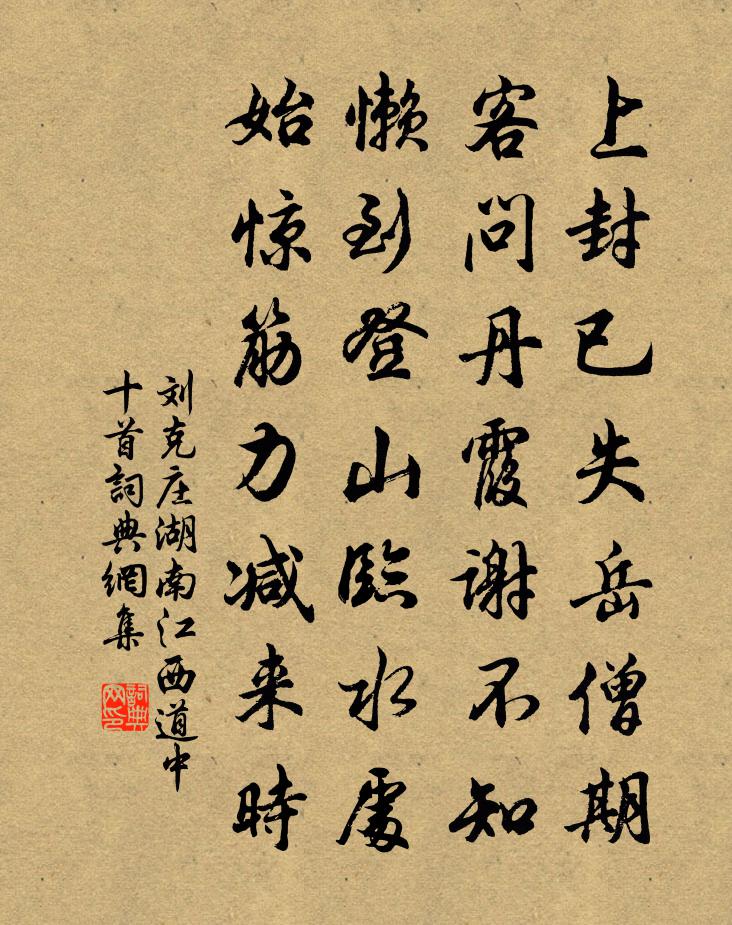 上封已失岳僧期
客问丹霞谢不知
懒到登山临水处
始惊筋力减来时
刘克庄湖南江西道中
十首詞典網集
詞典
网印